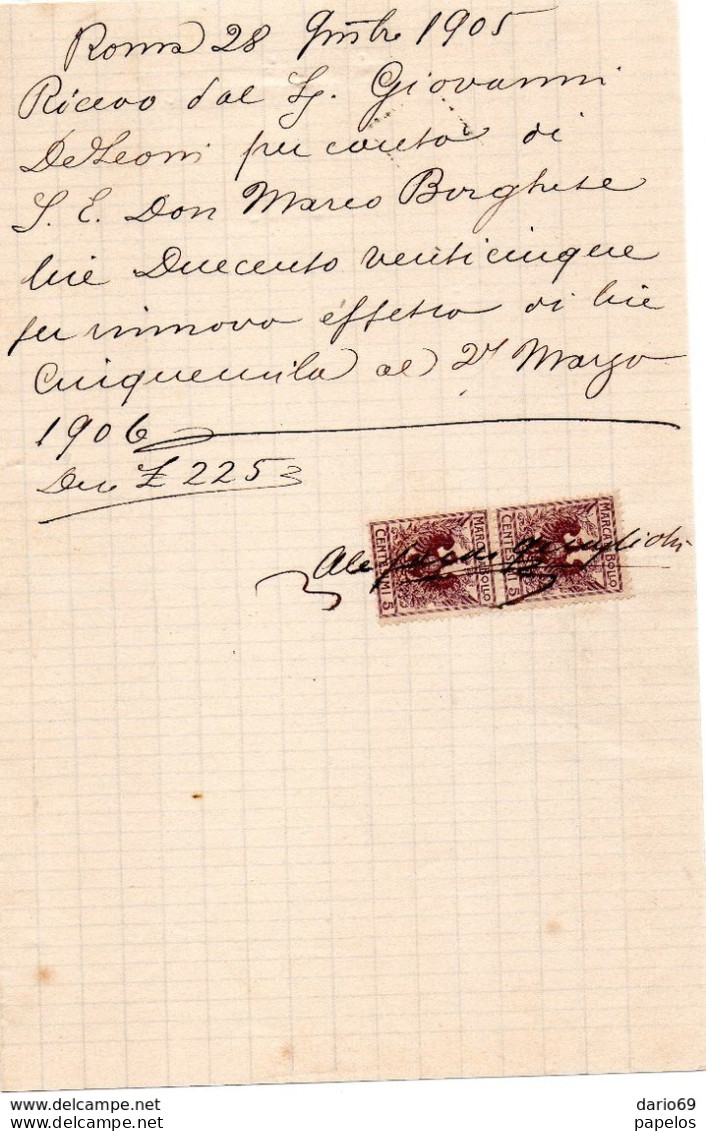 Roma 28 9mbre 1905
Ricevo dal Sg. Giovanni
DeLeoni per conto di
S. E. Don Marco Borghese
lire Duecento venticinque
per rinnovo effetto di lire
Cinquemila al 27 Marzo
1906
Dico £ 225
MARCA DA BOLLO
CENTESIMI 5
MARCA DA BOLLO
CENTESIMI 5
delcampe.net
delcampe.net
dario69
papelos